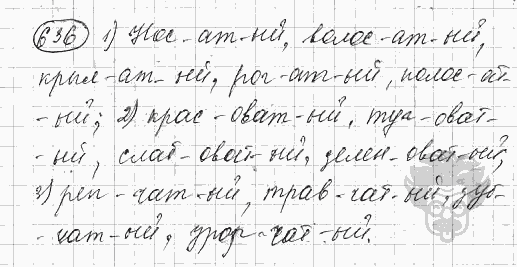 636 1) Нос-ат-ый, волос-ат-ый,
крыл-ат-ый, рог-ат-ый, полос-ат-
-ый; 2) крас-оват-ый, туг-оват-
-ый, слаб-оват-ый, зелен-оват-ый;
3) реп-чат-ый, трав-чат-ый, зуб-
-чат-ый, узор-чат-ый.